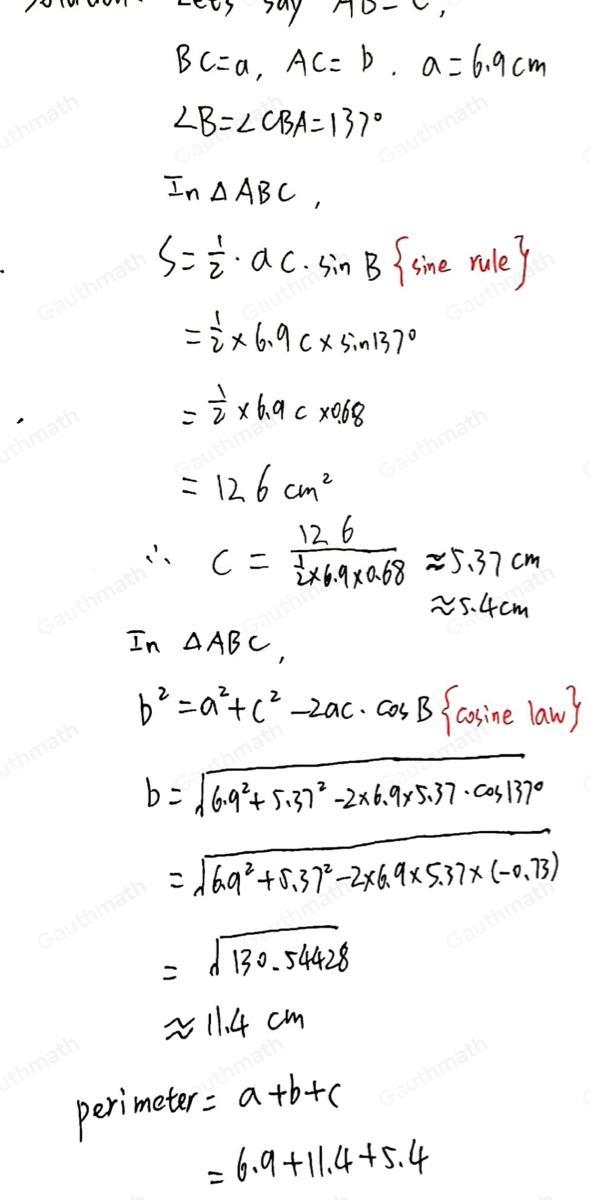 Lets say AB = C,
BC=a, AC= b. a=6.9cm
∠B=∠CBA=137°
In △ABC,
S=½·ac·sin B {sine rule}
=½×6.9c×sin137°
=½×6.9c×0.68
=12.6 cm²
∴ C = 12.6/(½×6.9×0.68) ≈5.37cm
≈5.4cm
In △ABC,
b²=a²+c²-2ac·cosB {cosine law}
b=√(6.9²+5.37²-2×6.9×5.37·cos137°)
=√(6.9²+5.37²-2×6.9×5.37×(-0.73))
=√130.54428
≈11.4 cm
perimeter= a+b+c
=6.9+11.4+5.4
Gauthmath